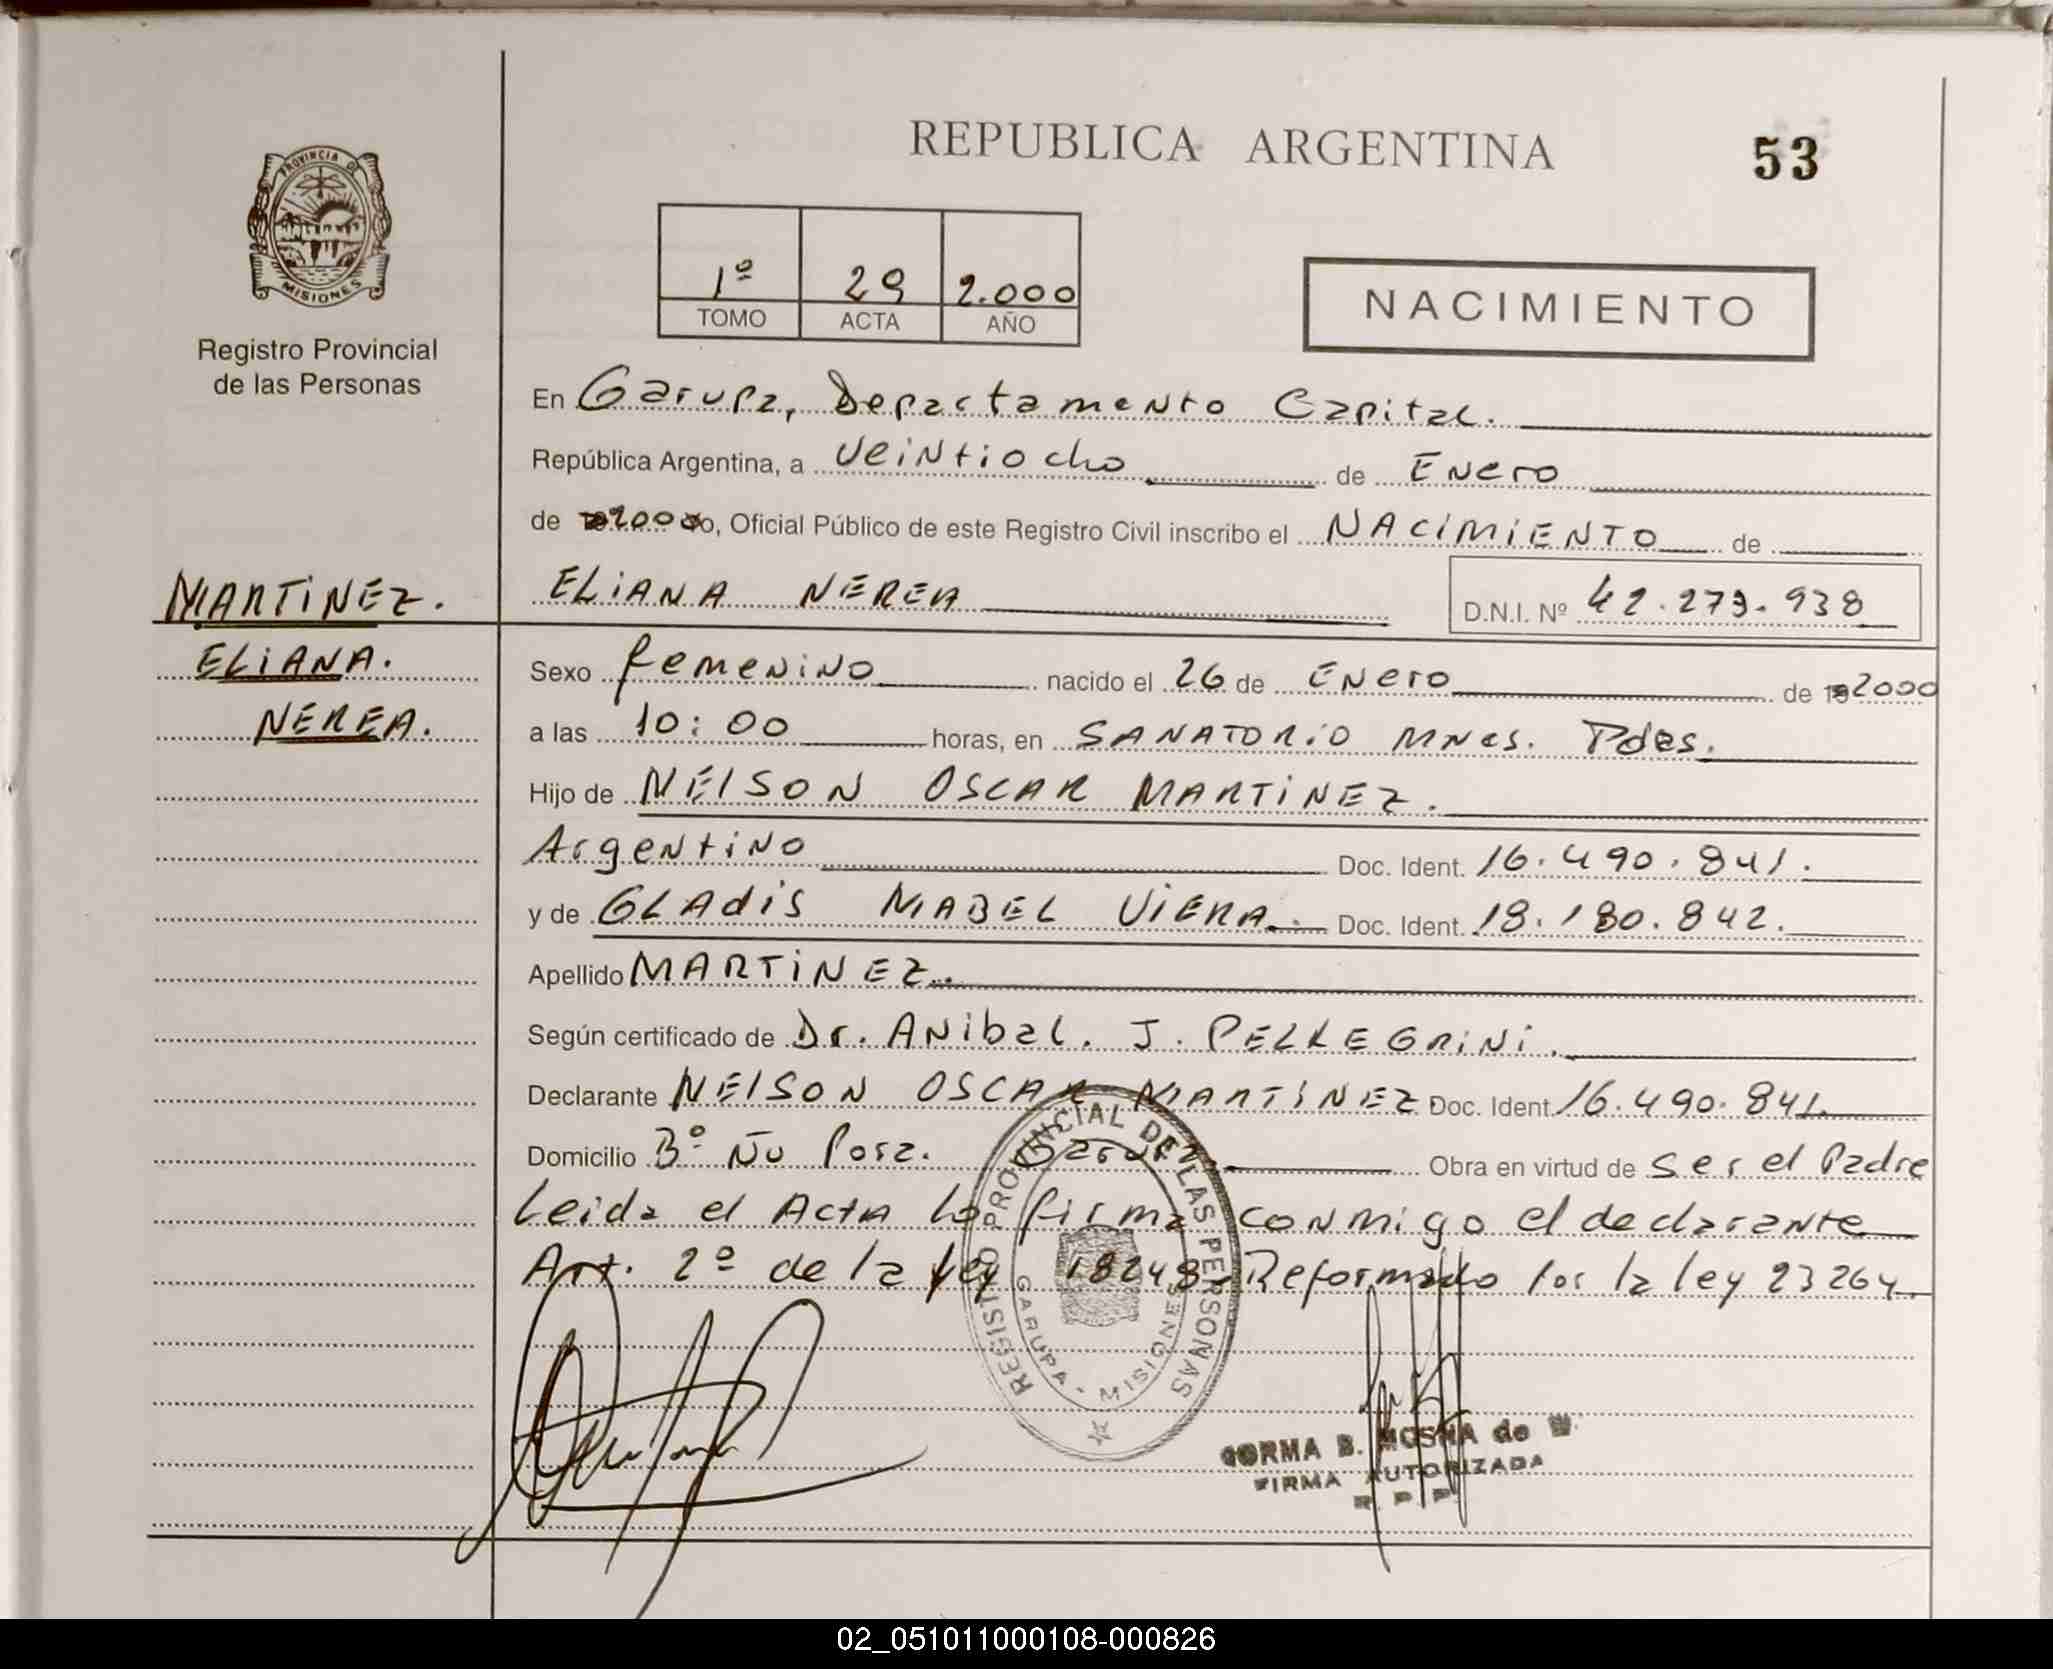 REPUBLICA ARGENTINA
53
PROVINCIA DE
MISIONES
Registro Provincial
de las Personas
1º 29 2.000
TOMO ACTA AÑO
NACIMIENTO
En Garupa, Departamento Capital.
República Argentina, a veintiocho de Enero
de 2000, Oficial Público de este Registro Civil inscribo el NACIMIENTO de
MARTINEZ.
ELIANA NEREA D.N.I. Nº 42.273.938
ELIANA.
Sexo femenino nacido el 26 de Enero de 2000
NEREA.
a las 10:00 horas, en SANATORIO Mnes. Pdas.
Hijo de NElSON OSCAR MARTINEZ.
Argentino Doc. Ident. 16.490.841.
y de GLAdiS MABEL ViERA. Doc. Ident. 18.180.842.
Apellido MARTINEZ.
Según certificado de Dr. ANibal. J. PELLEGRINI.
Declarante NElSON OSCAR MARTINEZ Doc. Ident. 16.490.841.
Domicilio Bº Ñu Pora. Garupa. Obra en virtud de ser el Padre
Leida el Acta la firma conmigo el declarante
Art. 2º de la ley 18248. Reformado por la ley 23264.
REGISTRO PROVINCIAL DE LAS PERSONAS
GARUPA - MISIONES
B. MOSNA de
FIRMA AUTORIZADA
R. P. P.
02_051011000108-000826